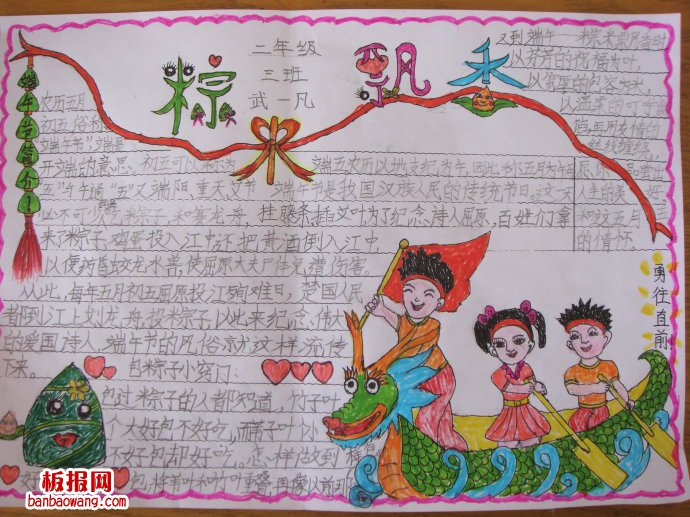 粽
米
飘
禾
二年级
三班
武一凡
端午节简介
又到端午
以芬芳的
为叶，
以宽厚的包容为米，
以温柔的叮
再用友情的
丝线缠绕，
农历五月
初五，俗称
"端午节"，端是
开端的意思、初五可以称为
端五。农历以地支纪为午，因此称五月为
五"
午通"五"又端阳、重
端午节是我国汉族人民的传统节日。这一天
必不可少
粽子，和赛龙舟，挂
插艾叶为了纪念，诗人屈原，百姓们拿
来了粽子、鸡蛋投入江中还把黄酒倒入江中
以便药
蛟龙水兽，使屈原大夫尸体免遭伤害。
从此，每年五月初五屈原投江殉难日，楚国人民
都到江上划龙舟投
粽子，以此来纪念，伟大
的爱国诗人，端午节的风俗就这样流传
下来。
人生的美
和这五月
的情怀
包粽子小窍门：
包过粽子的人都知道，竹子叶
个大好包不好吃，而苇子叶
不好包却好吃，怎样做到
包，将苇叶和竹叶重叠，再像以前
勇往直前
板报网
banbaowang.com